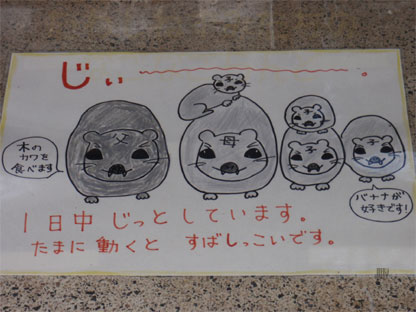 じぃ〜。
子
父
母
子
子
木の
カワを
食べます
バナナが
好きです!
1日中 じっと しています。
たまに 動くと すばしっこいです。